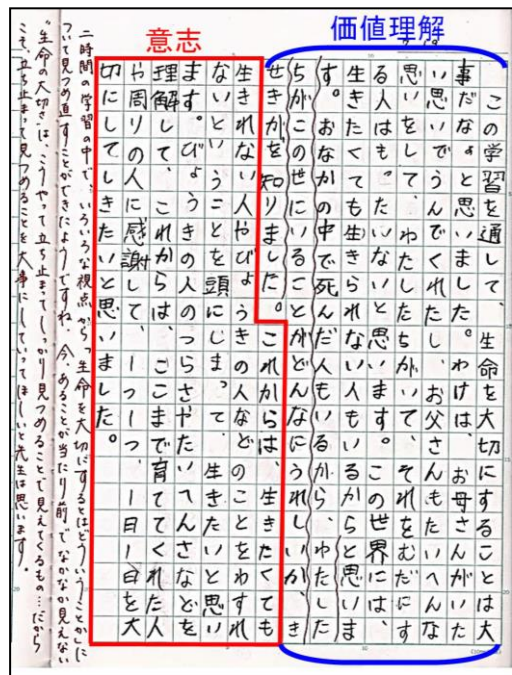 価値理解
意志
この学習を通して、生命を大切にすることは大
事だなぁと思いました。わけは、お母さんがいた
い思いでうんでくれたし、お父さんもたいへんな
思いをして、わたしたちがいて、それをむだにす
る人はもったいないと思います。この世界には、
生きたくても生きられない人もいるから、と思いま
す。おなかの中で死んだ人もいるから、わたした
ちがこの世にいることがどんなにうれしいか、き
せきかを知りました。これからは、生きたくても
生きれない人やびょうきの人などのことをわすれ
ないということを頭にしまって、生きたいと思い
ます。びょうきの人のつらさやたいへんさなどを
理解して、これからは、ここまで育てくれた人
や周りの人に感謝して、一つ一つ、一日一日を大
切にしてしきたいと思いました。
二時間の学習の中で、いろいろな視点から"生命を大切にするとはどういうことか"に
ついて見つめ直すことができたようですね。今、あることが当たり前でなかなか見えない
"生命の大切さ"は、こうやって立ち止まってしっかり見つめることで見えてくるもの…だから
こそ、立ち止まって見つめることを大事にしていってほしいと先生は思います。